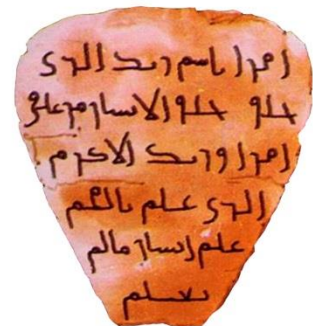 اقرا باسم ربك الذي
خلق خلق الانسان من علق
اقرا وربك الاكرم
الذي علم بالقلم
علم الانسان مالم
يعلم